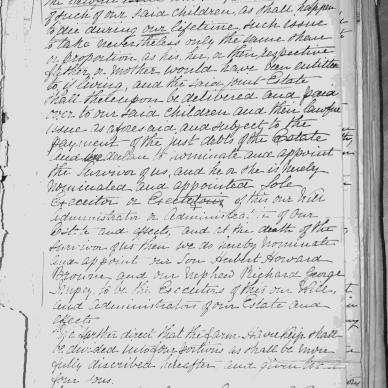 of such of our said children, as shall happen
to die during our lifetime such issue
to take nevertheless only the same share
or proportion as his, her, or their respective
father or mother would have been entitled
to, if living, and the said joint Estate
shall thereupon be delivered and paid
over to our said children and their lawful
issue as aforesaid, and subject to the
payment of the just debts of the Estate
And we declare to nominate and appoint
the Survivor of us, and he or she is hereby
nominated and appointed Sole
Executor or Executrix of this our Will
Administrator or Administratrix of our
Estate and effects, and at the death of the
survivor of us then we do hereby nominate
and appoint our Son Hubert Howard
Browne and our Nephew Richard George
to be the Executors of this our Will
and administrators of our Estate and
Effects
We further direct that the farm shall
be divided into four portions as shall be more
fully described hereafter and given to our
four sons.